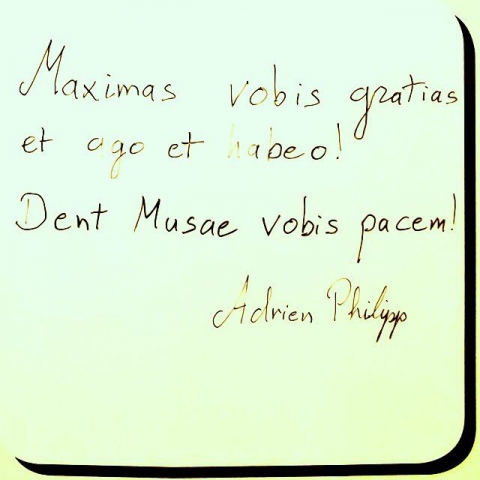 Maximas vobis gratias
et ago et habeo!
Dent Musae vobis pacem!
Adrien Philipp